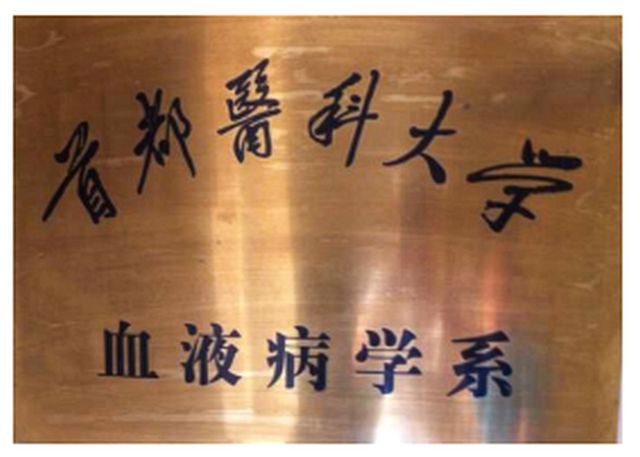 首都醫科大学
血液病学系